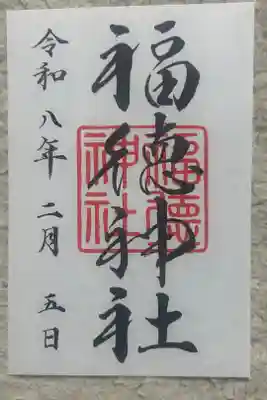 福徳神社
福德
神社
令和八年二月五日